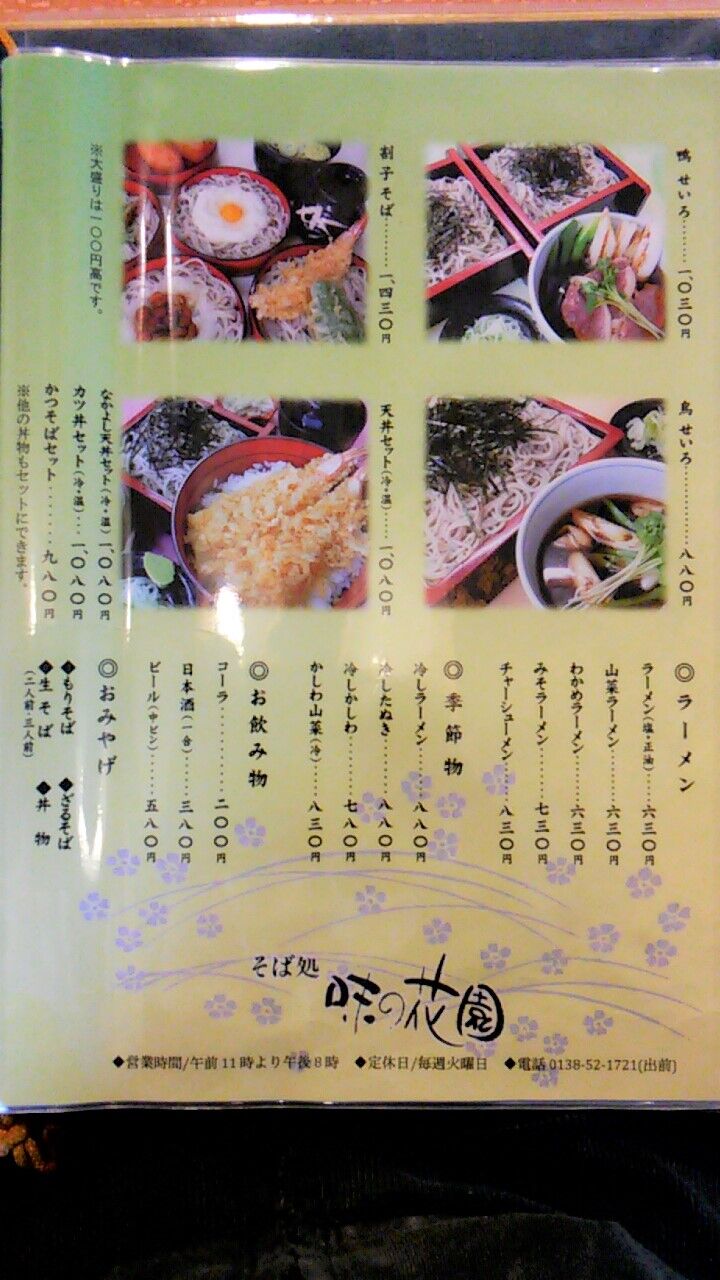 鴨せいろ………一、〇三〇円
割子そば………一、四三〇円
※大盛りは一〇〇円高です。
鳥せいろ…………八八〇円
天丼セット(冷・温)一、〇八〇円
なかよし天丼セット(冷・温)一、〇八〇円
カツ丼セット(冷・温)…一、〇八〇円
かつそばセット………九八〇円
※他の丼物もセットにできます。
◎ラーメン
ラーメン(塩・正油)……六三〇円
山菜ラーメン………六三〇円
わかめラーメン………六三〇円
みそラーメン………七三〇円
チャーシューメン……八三〇円
◎季節物
冷しラーメン………八八〇円
冷したぬき…………八八〇円
冷しかしわ…………七八〇円
かしわ山菜(冷)……八三〇円
◎お飲み物
コーラ…………二〇〇円
日本酒(一合)………三八〇円
ビール(中ビン)……五八〇円
◎おみやげ
◆もりそば ◆ざるそば
◆生そば ◆丼物
(二人前・三人前)
そば処
味の花園
◆営業時間/午前11時より午後8時 ◆定休日/毎週火曜日 ◆電話 0138-52-1721(出前)